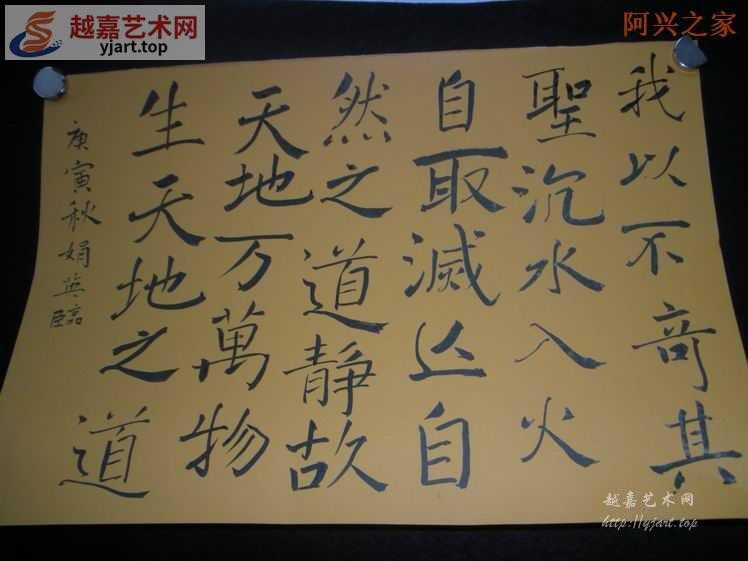 越嘉艺术网
yjart.top
阿兴之家
我以不竒其
聖沉水入火
自取滅亾自
然之道靜故
天地万萬物
生天地之道
庚寅秋娟英臨
越嘉艺术网
http://yjart.top